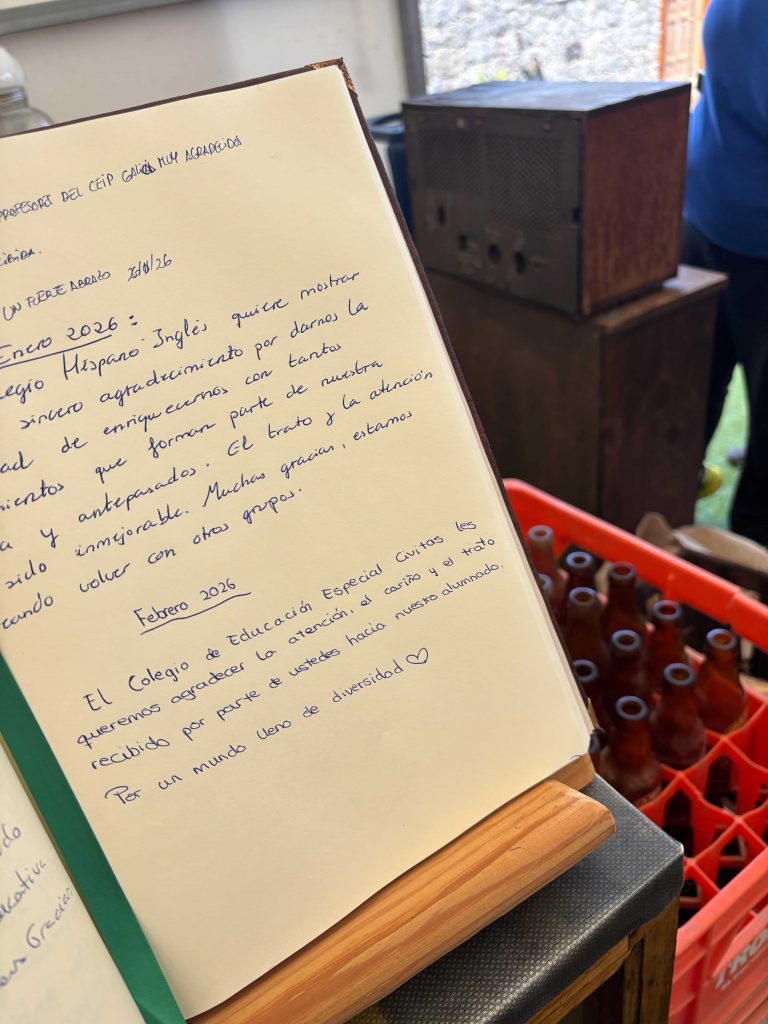 PROFESORES DEL CEIP MUY AGRADECIDOS
UN FUERTE ABRAZO
Enero 2026:
Hispano Inglés quiere mostrar
sincero agradecimiento por darnos la
de enriquecernos con tantos
que forman parte de nuestra
y antepasados. El trato y la atención
sido inmejorable. Muchas gracias, estamos
volver con otros grupos.
Febrero 2026
El Colegio de Educación Especial Civitas les
queremos agradecer la atención, el cariño y el trato
recibido por parte de ustedes hacia nuestro alumnado.
Por un mundo lleno de diversidad ♡
Gracias